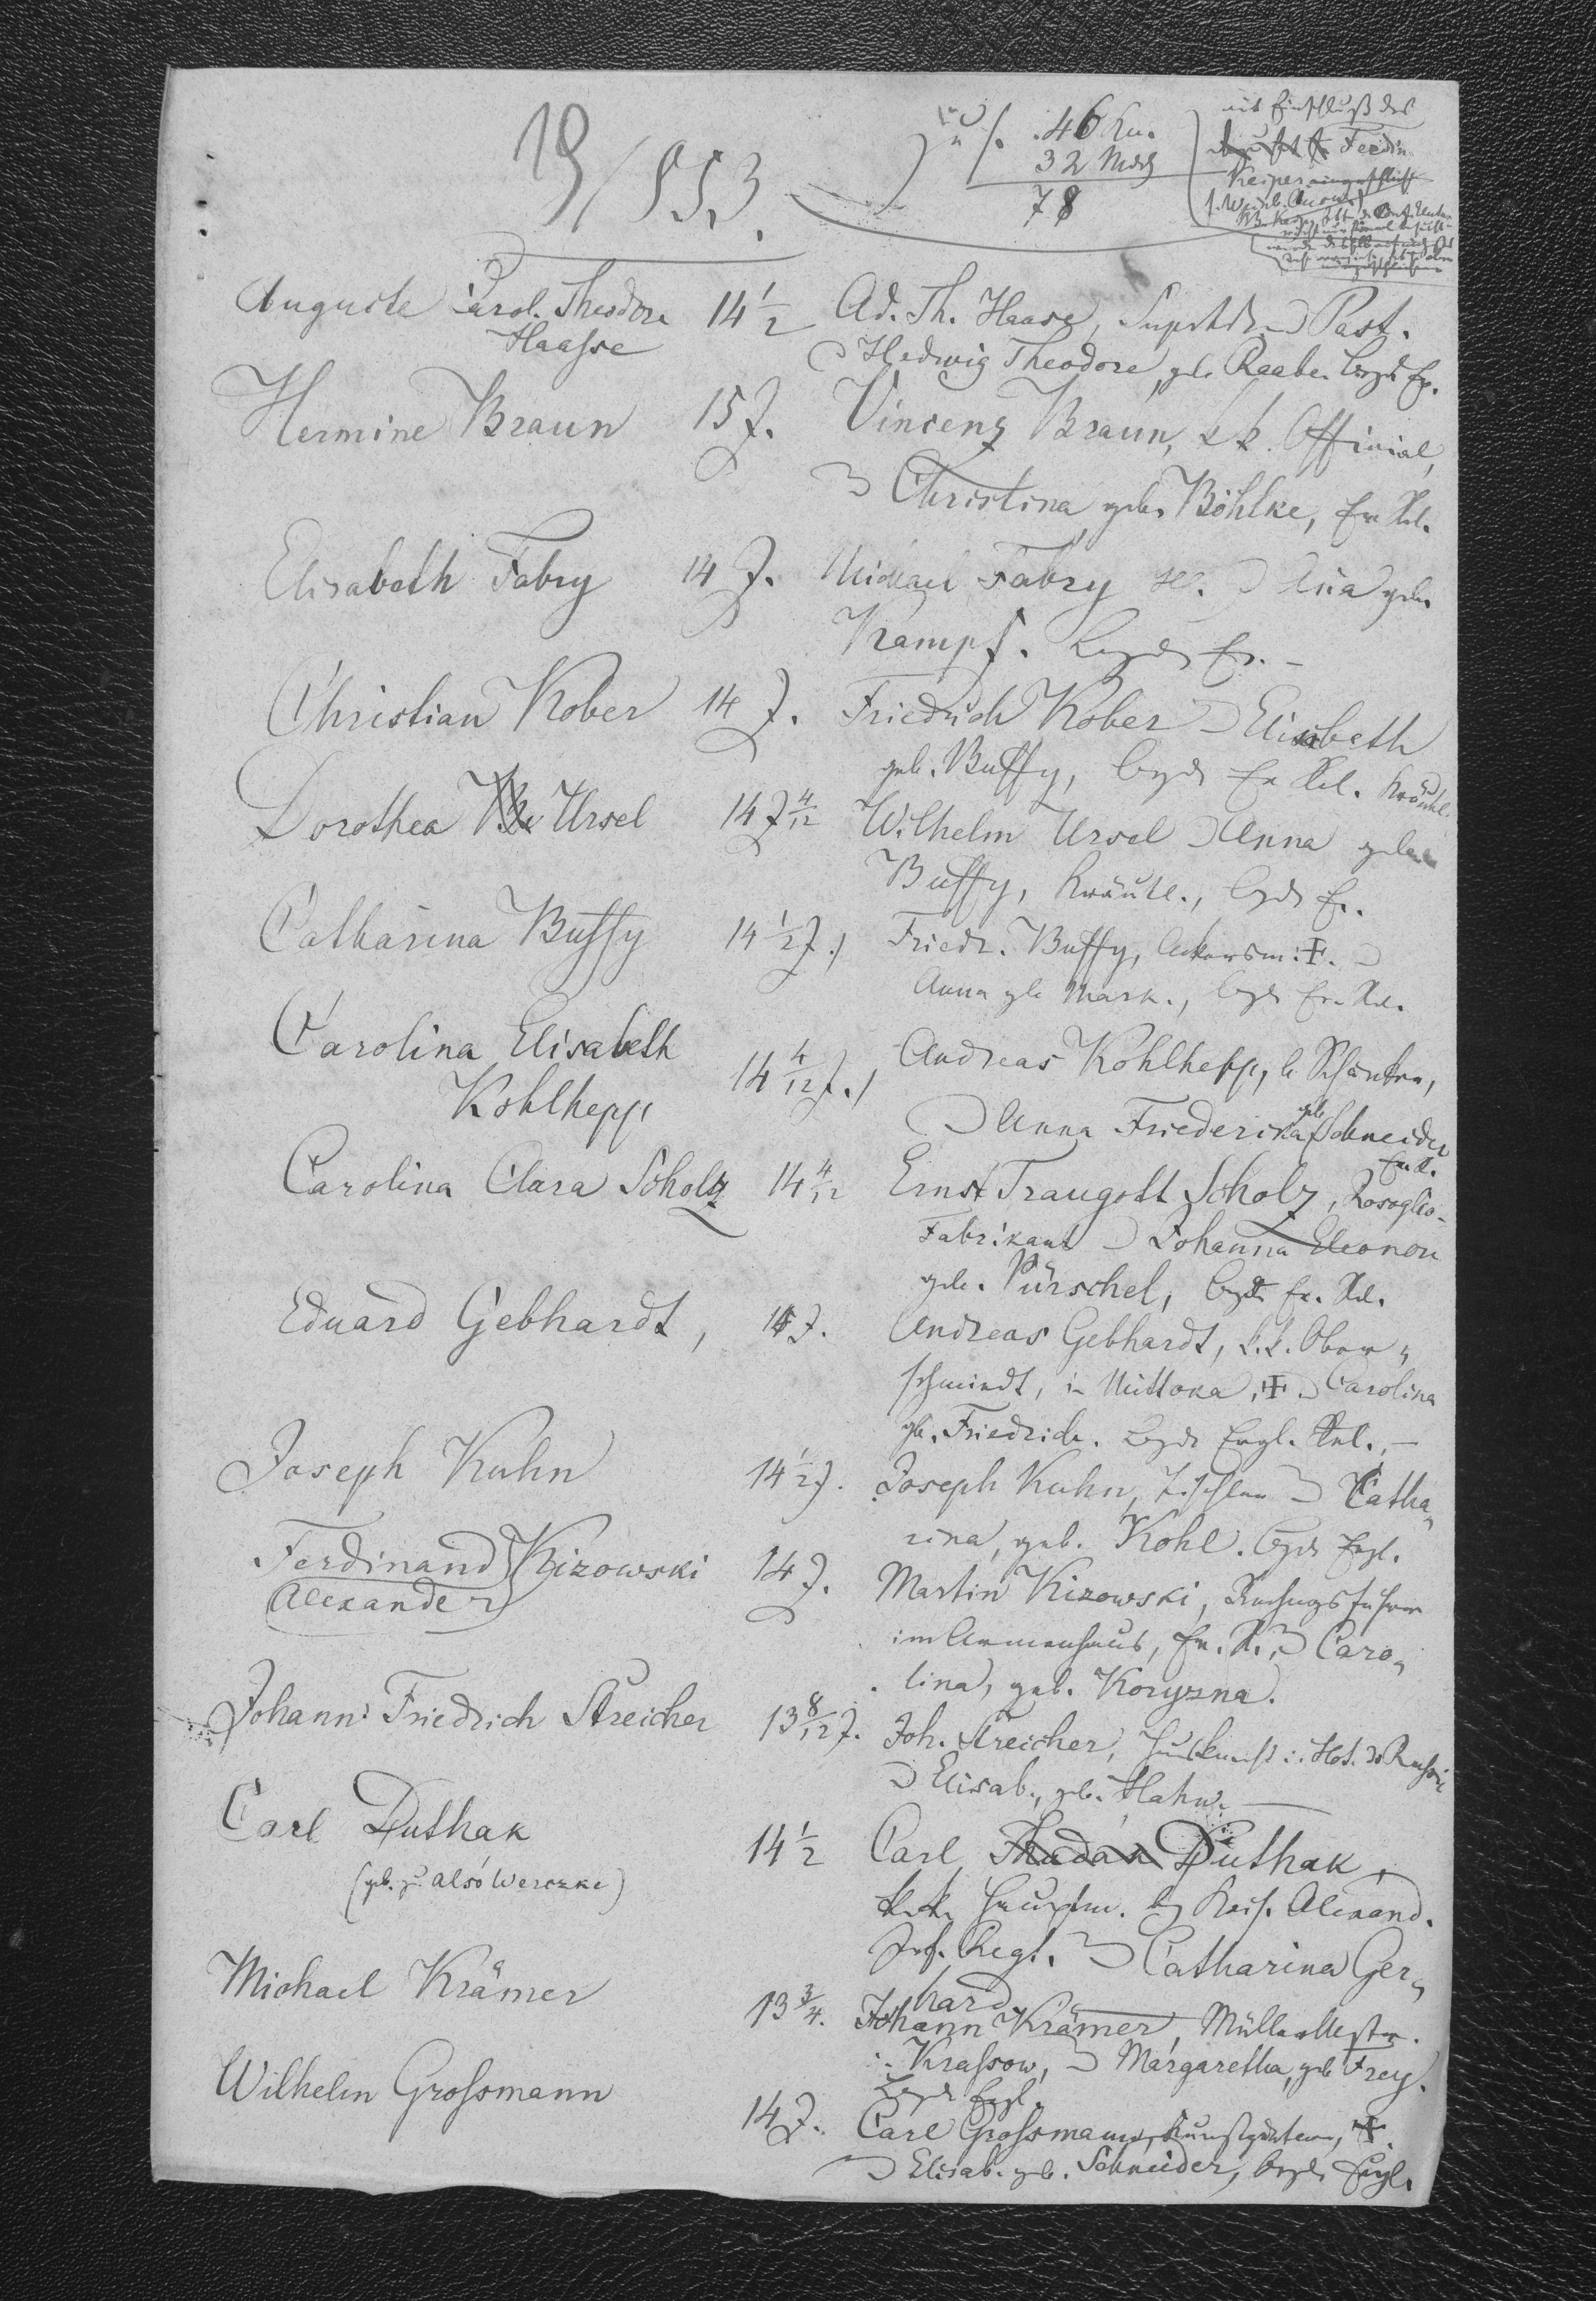 19/553.
zus. 46 Kn.
32 Mdch
78
mit Einschluß des
Ferdin
Keiper
Auguste Carol. Theodora 14 1/2 Ad. Th. Haase, Suptdt u. Past.
Haasse
u Hedwig Theodore, geb. Raabe. beyde Ev.
Hermine Braun 15 J. Vincenz Braun, k. k. Official,
u Christina geb. Böhlke, Ev. Rel.
Elisabeth Fabry 14 J. Michael Fabry u Ana geb.
Kampf. Beyde Ev. -
Christian Kober 14 J. Friedrich Kober u Elisabeth
geb. Buffy, beyde Ev Rel.
Dorothea Ursel 14 J 4/12 Wilhelm Ursel u Anna geb.
Buffy, beyde Ev.
Catharina Buffy 14 1/2 J. Friedr. Buffy, Ackersm: ✝. u
Anna geb Mark., beyde Ev. Rel.
Carolina Elisabeth
Kohlhepp 14 4/12 J. Andreas Kohlhepp, b. Schänker,
u Anna Friederika geb Schneider
Ev. R.
Carolina Clara Scholz 14 4/12 Ernst Traugott Scholz, Rosoglio-
Fabrikant u Johanna Eleonore
geb. Pürschel, beyde Ev. Rel.
Eduard Gebhardt, 15 J. Andreas Gebhardt, k. k. Ober-
schmiedt, in Mittoka, ✝ u Carolina
gb. Friedrich. Beyde Evgl. Rel. -
Joseph Kuhn 14 1/2 J. Joseph Kuhn, Tischler u Catha-
rina, geb. Kohl. beyde Evgl.
Ferdinand Kizowski 14 J. Martin Kizowski, Rechngsführer
Alexander
im Armenhaus, Ev. R. u Caro-
lina, geb. Koryzna.
Johann Friedrich Streicher 13 8/12 J. Joh. Streicher, Hausknecht i. Hot. de Russie
u Elisab., geb. Hahn.
Carl Duthak 14 1/2 Carl Duthak,
(geb. zu Alsó Wereczke)
k. k. Hauptm. bey Kais. Alexand.
Inf. Regt. u Catharina Ger-
hard
Michael Krämer 13 3/4. Johann Krämer, Müllermeister.
i. Krassow, u Margaretha, geb Frey.
Beyde Evgl.
Wilhelm Grossmann 14 J. Carl Grossmann, Kunstgärtner, ✝.
u Elisab. geb. Schneider, beyde Evgl.